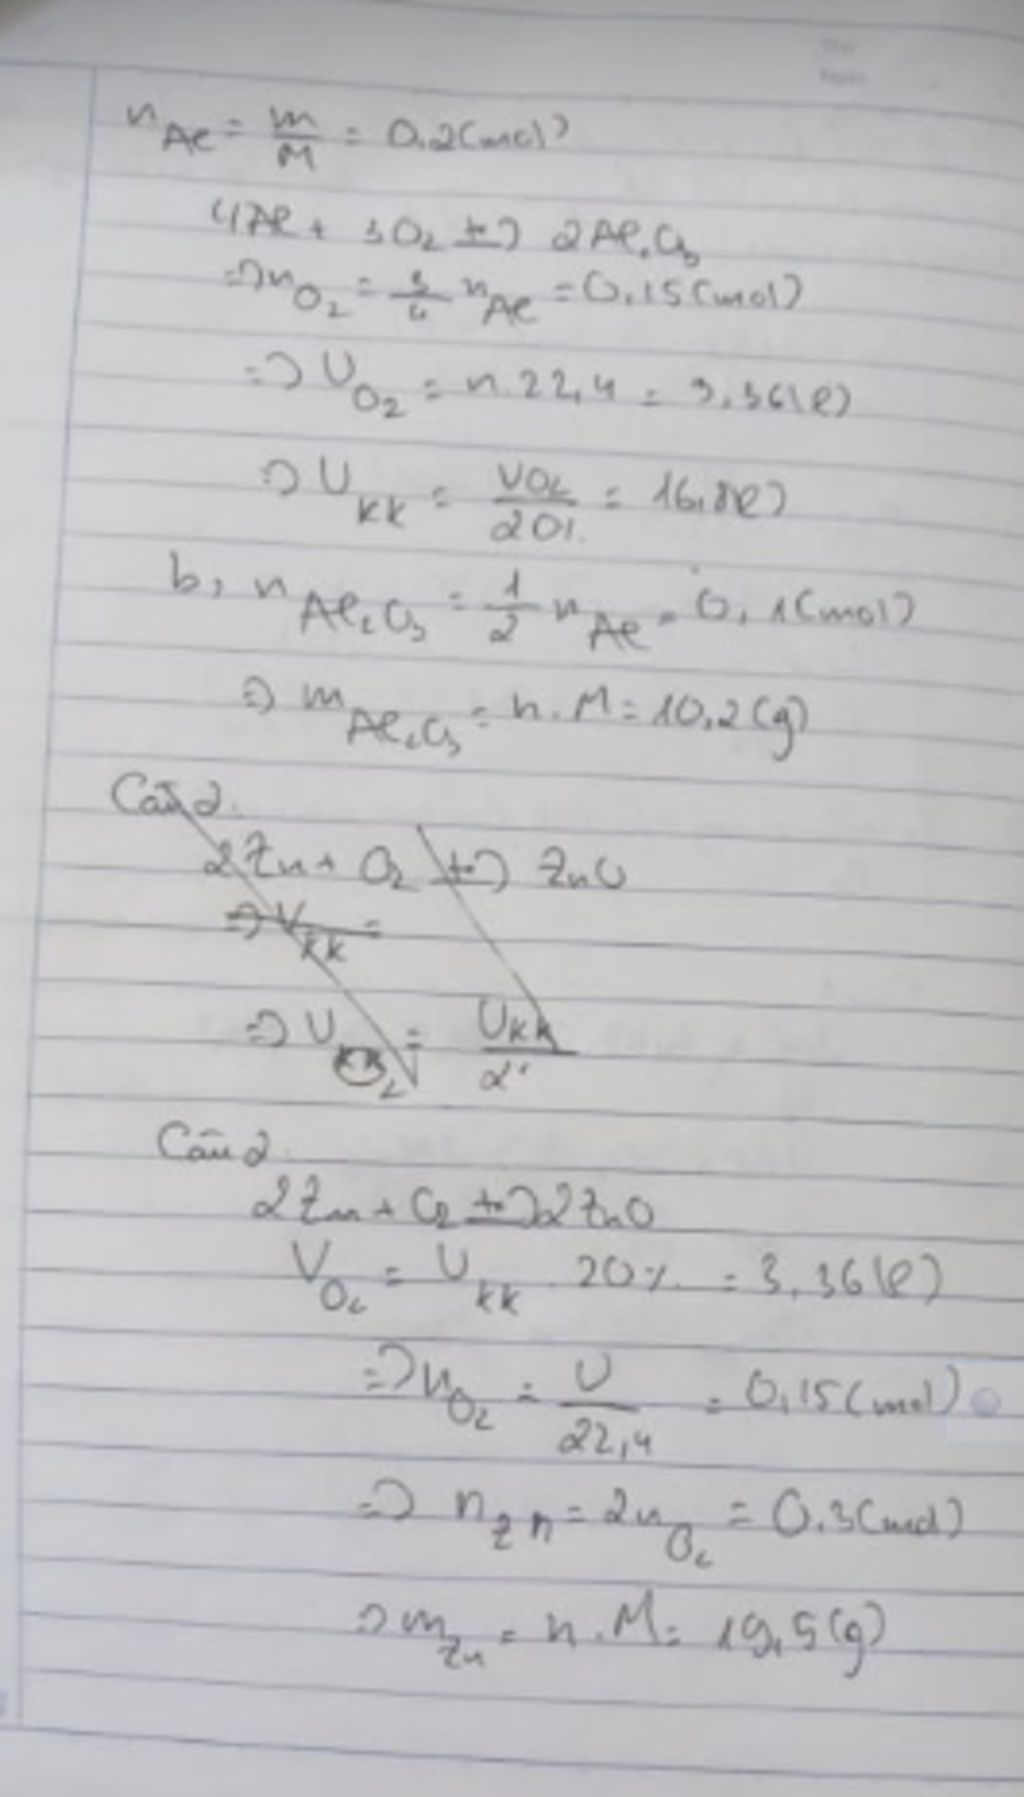 n Al = m/M = 0,2 (mol)
4Al + 3O2 t°→ 2Al2O3
=> n O2 = 3/4 n Al = 0,15 (mol)
=> V O2 = n.22,4 = 3,36 (l)
=> V kk = VO2/20% = 16,8 (l)
b, n Al2O3 = 1/2 n Al = 0,1 (mol)
=> m Al2O3 = n.M = 10,2 (g)
Câu 2.
2Zn + O2 t°→ ZnO
=> V kk =
=> V O2 = Vkk/2
Câu 2.
2Zn + O2 t°→ 2ZnO
V O2 = V kk . 20% = 3,36 (l)
=> n O2 = V/22,4 = 0,15 (mol)
=> n Zn = 2n O2 = 0,3 (mol)
=> m Zn = n.M = 19,5 (g)